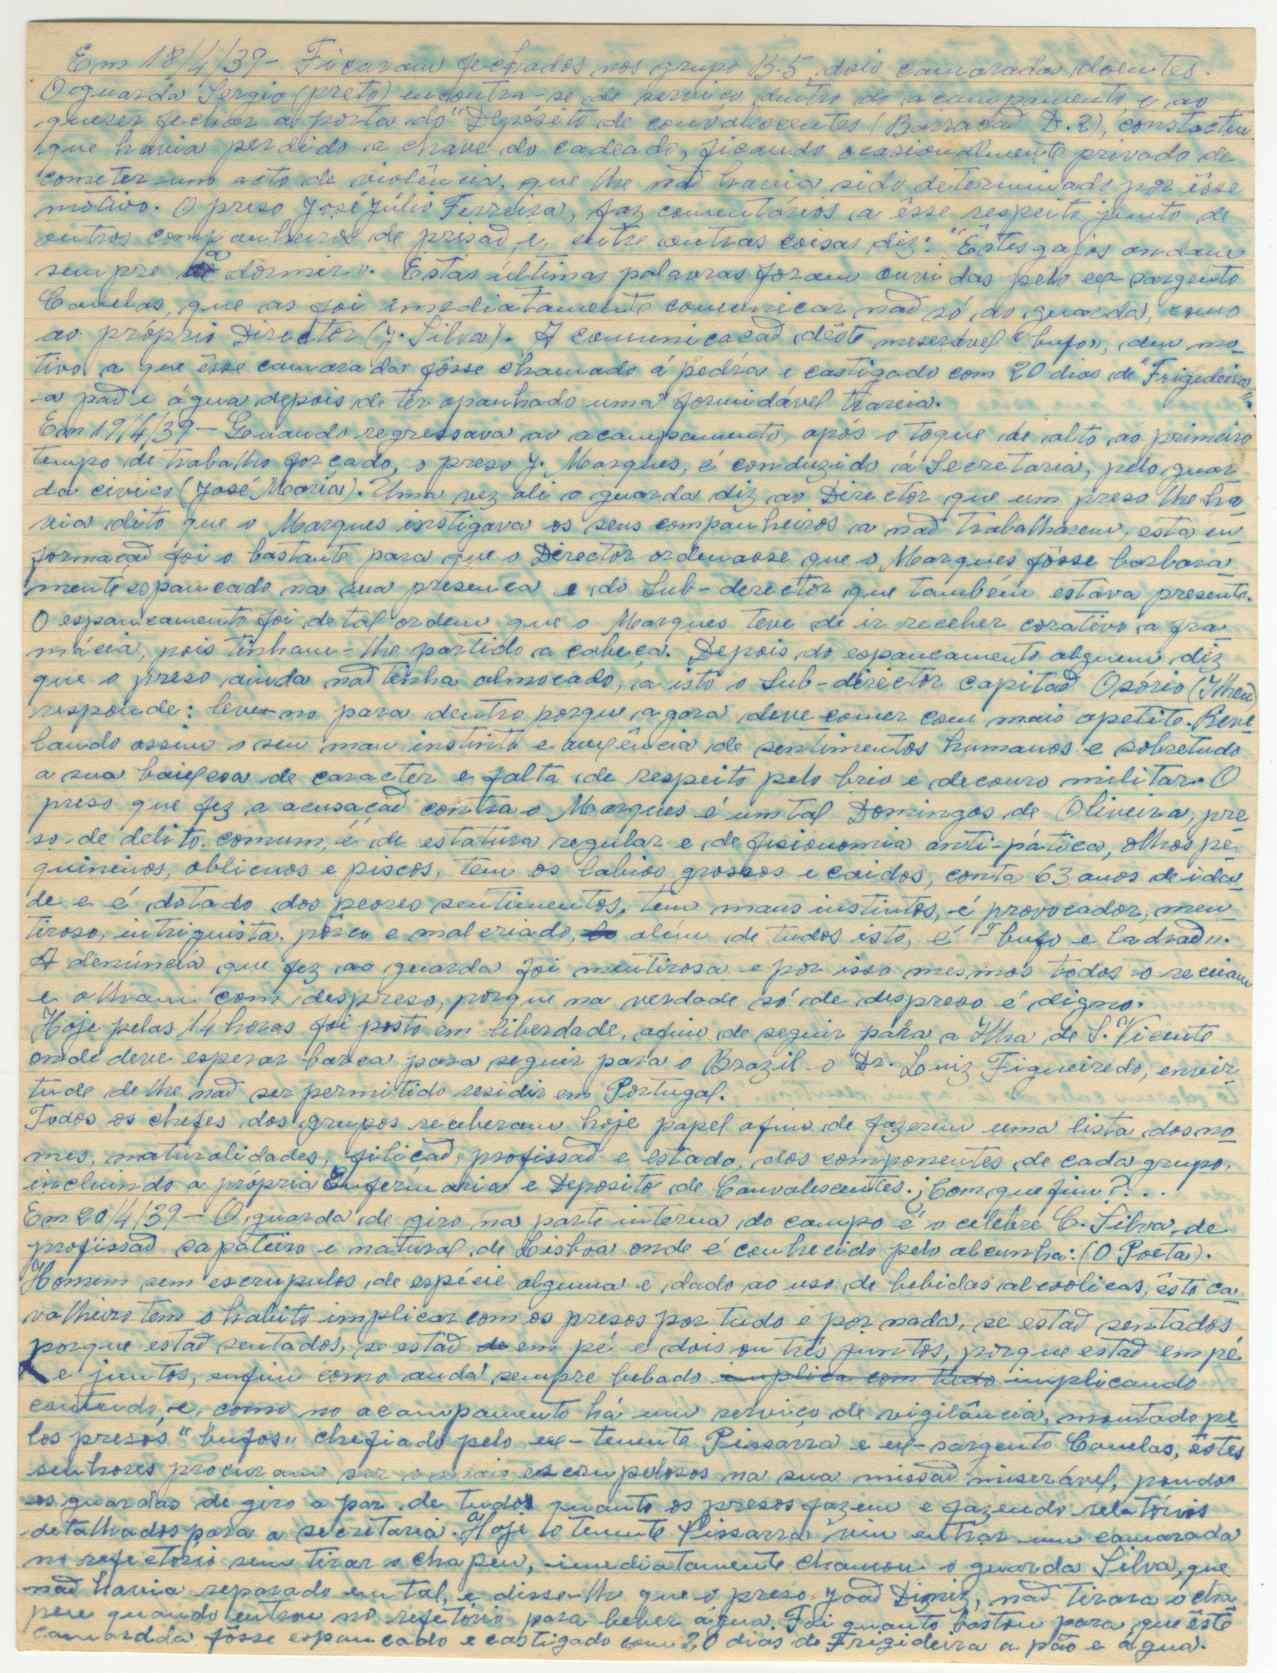 Em 18/4/39 - Ficaram fechados nos grupo B.5, dois camarada doentes.
O guarda Sergio (preto) encontra-se de serviço dentro do acampamento e ao
querer fechar a porta do "Depósito de convalescentes (Barracão D.2), constactou
que havia perdido a chave do cadeado, ficando ocasionalmente privado de
cometer um acto de violência, que lhe nad havia sido determinado por êsse
motivo. O preso José Júlio Ferreira, faz comentários a êsse respeito junto de
outros companheiros de presad e, entre outras coisas diz: "Estes gajos andam
sempre a dormir". Estas últimas palavras foram ouvidas pelo ex-sargento
Canelas, que as foi imediatamente comunicar nad só ao guarda, como
ao próprio Director (J. Silva). A comunicaçad dêste miserável "bufo", deu mo-
tivo a que êsse camarada fôsse chamado á pedra e castigado com 20 dias de "Frigideira"
a pad e água depois de ter apanhado uma formidável tareia.
Em 19/4/39 - Quando regressava ao acampamento, após o toque de alto ao primeiro
tempo de trabalho forçado, o preso J. Marques, é conduzido á Secretaria, pelo guar-
da civico (José Maria). Uma vez ali o guarda diz ao Director que um preso lhe ha-
via dito que o Marques instigava os seus companheiros a nad trabalharem, esta in-
formaçad foi o bastante para que o Director ordenasse que o Marques fôsse barbara-
mente espancado na sua presença e do Sub-director que também estava presente.
O espancamento foi de tal ordem que o Marques teve de ir receber corativo a fra-
mácia, pois tinham-lhe partido a cabeça. Depois do espancamento alguem diz
que o preso ainda nad tinha almoçado, a isto o Sub-director capitad Osório
responde: leve-no para dentro porque agora deve comer com mais apetite. Reve-
lando assim o seu mau instinto e ausência de sentimentos humanos e sobretudo
a sua baixesa de caracter e falta de respeito pelo brio e decouro militar. O
preso que fez a acusaçad contra o Marques é um tal Domingos de Oliveira, pre-
so de delito comum, é de estatura regular e de fisionomia anti-pática, olhos pe-
quininos, oblicuos e piscos, tem os labios grossos e caidos, conta 63 anos de ida-
de e é dotado dos peores sentimentos, tem maus instintos, é provocador, men-
tiroso, intriguista, pôrco e malcriado, além de tudos isto, é "bufo e ladrad".
A denúncia que fez ao guarda foi mentirosa e por isso mesmos todos o receiam
e olham com despreso, porque na verdade só de despreso é digno.
Hoje pelas 14 horas foi posto em liberdade, afim de seguir para a Ilha de S. Vicente
onde deve esperar barca para seguir para o Brazil o Dr. Luiz Figueiredo, em vir-
tude de lhe nad ser permitido residir em Portugal.
Todos os chefes dos grupos receberam hoje papel afim de fazerem uma lista dos no-
mes, naturalidades, filiçad, profissad e estado, dos componentes de cada grupo,
incluindo a própria Enfermaria e Deposito de Convalescentes. ¿Com que fim?...
Em 20/4/39 - O guarda de giro na parte interna do campo é o celebre C. Silva, de
profissad sapateiro e natural de Lisboa onde é conhecido pelo alcunha: (O Poeta).
Homem sem escrupulos de espécie alguma e dado ao uso de bebidas alcoolicas, êste ca-
valheiro tem o habito implicar com os presos por tudo e por nada, se estad sentados
porque estad sentados, se estad de em pé e dois ou três juntos, porque estad em pé
e juntos, enfim como anda sempre bebado implica com tudo implicando
contudo, e, como no acampamento há um serviço de vigilância, montado pe-
los presos "bufos" chefiado pelo ex-tenente Pissarra e ex-sargento Canelas, êstes
senhores procuram ser o mais escrupolosos na sua missad miserável, pondo
os guardas de giro a par de tudos quanto os presos fazem e fazendo relatórios
detalhados para a secretaria. Hoje o tenente Pissarra viu entrar um camarada
no refeitório sem tirar o chapeu, imediatamente chamou o guarda Silva, que
nad havia reparado em tal, e disse-lhe que o preso Joad Diniz, nad tirara o cha-
peu quando entrou no refeitório para beber água. Foi quanto bastou para que êste
camarada fôsse espancado e castigado com 20 dias de Frigideira a pão e água.